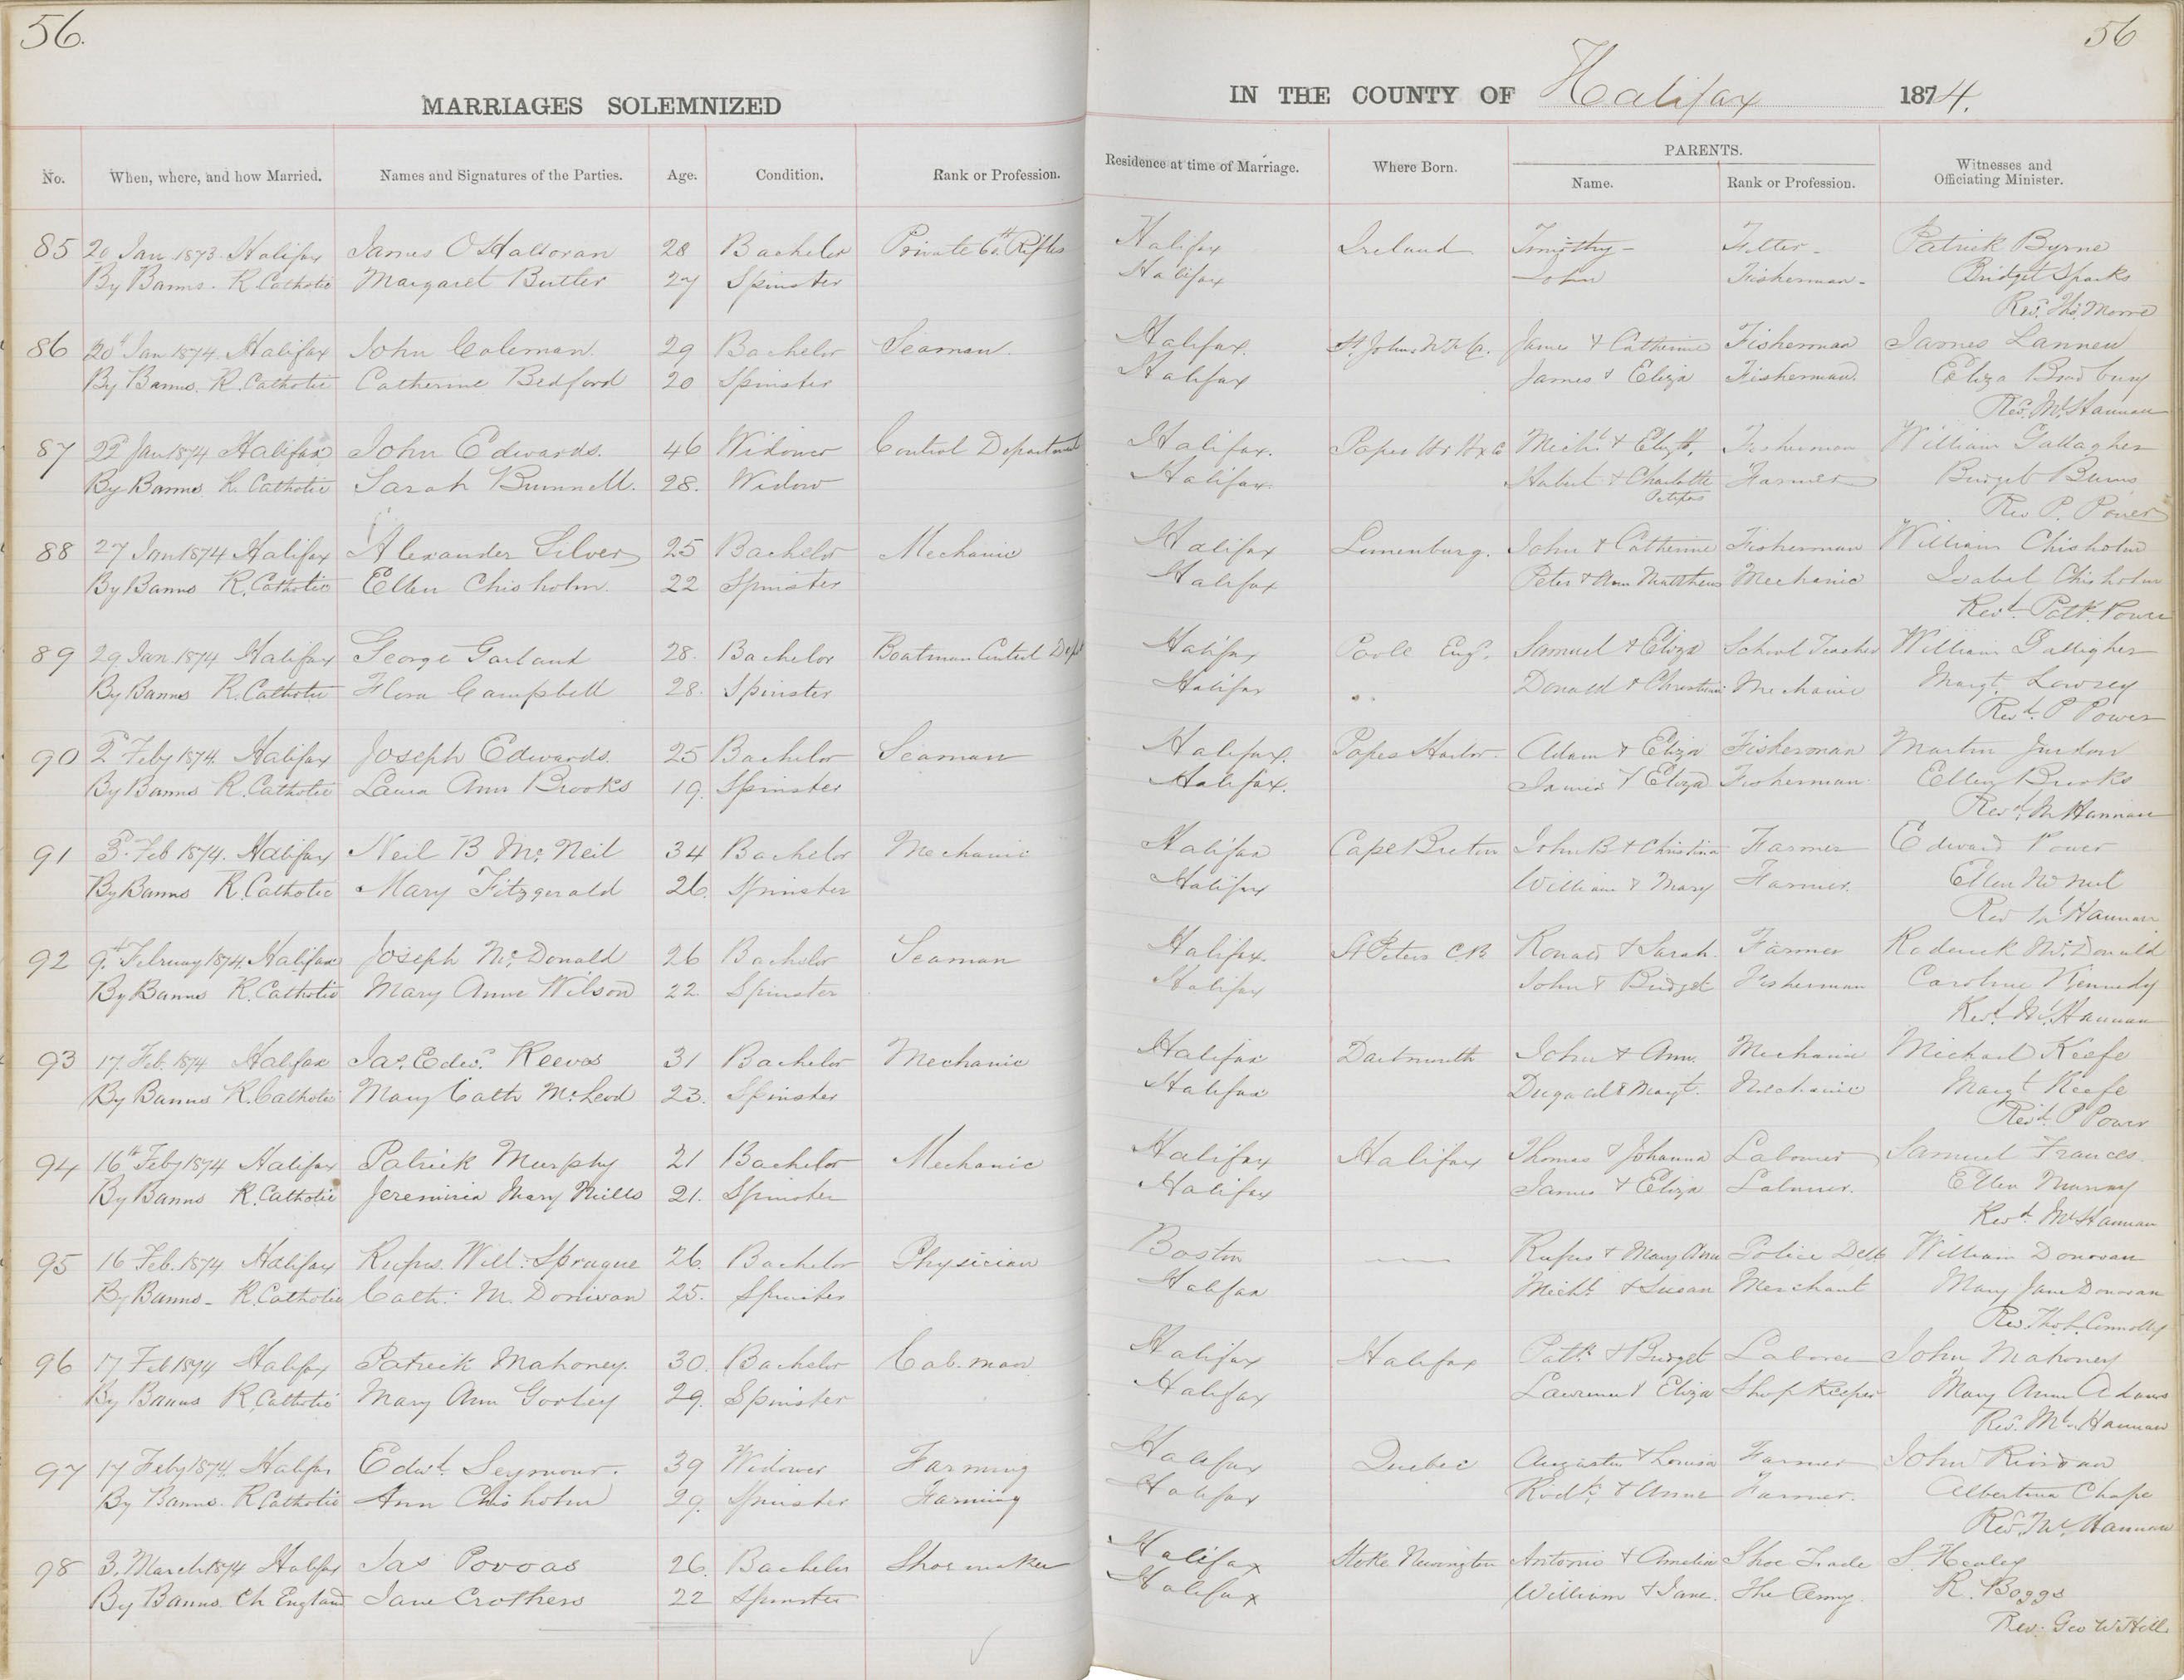 56.
56
MARRIAGES SOLEMNIZED
IN THE COUNTY OF Halifax 1874.
No. When, where, and how Married. Names and Signatures of the Parties. Age. Condition. Rank or Profession. Residence at time of Marriage. Where Born. PARENTS. Name. Rank or Profession. Witnesses and Officiating Minister.
85 20 Jan 1873 Halifax James O'Halloran 28 Bachelor Private 60th Rifles Halifax Ireland Timothy - Patrick Byrne
By Banns. R. Catholic Margaret Butler 27 Spinster Halifax John Fisherman - Bridget Sparks
Rev. Ths. Moore
86 20th Jan 1874. Halifax John Coleman 29 Bachelor Seaman. Halifax. St. Johns James & Catherine Fisherman James Lannen
By Banns. R. Catholic Catherine Bedford 20 Spinster Halifax James & Eliza Fisherman. Eliza Bradbury
Rev. Ml. Hannan
87 22d Jan 1874 Halifax John Edwards. 46 Widower Control Department Halifax. Popes Hr Hx Co Michl. & Elizth. Fisherman William Gallagher
By Banns R. Catholic Sarah Bunnell. 28. Widow Halifax. & Charlotte Farmer Bridget Burns
Petipas
Rev P. Power
88 27 Jan 1874 Halifax Alexander Silver 25 Bachelor Mechanic Halifax Lunenburg. John & Catherine Fisherman William Chisholm
By Banns R. Catholic Ellen Chisholm. 22 Spinster Halifax Peter & Ann Matthews Mechanic Isabel Chisholm
Revd. Patk. Power
89 29 Jan 1874 Halifax George Garland 28. Bachelor Boatman Control Dept Halifax Poole Eng. Samuel & Eliza School Teacher William Galligher
By Banns R. Catholic Flora Campbell 28. Spinster Halifax Donald & Christina Mechanic Margt. Lowrey
Revd. P Power
90 2d Feby 1874. Halifax Joseph Edwards. 25 Bachelor Seaman Halifax. Popes Harbor. Adam & Eliza Fisherman Martin
By Banns R. Catholic Laura Ann Brooks 19. Spinster Halifax. James & Eliza Fisherman Ellen Brooks
Revd. M Hannan
91 3d. Feb 1874. Halifax Neil B McNeil 34 Bachelor Mechanic Halifax Cape Breton John B & Christina Farmer Edward Power
By Banns R. Catholic Mary Fitzgerald 26. Spinster Halifax William & Mary Farmer. Ellen McNeil
Rev Ml Hannan
92 9th Februay 1874. Halifax Joseph McDonald 26 Bachelor Seaman Halifax. St Peters C.B Ronald & Sarah. Farmer Roderick McDonald
By Banns R. Catholic Mary Anne Wilson 22 Spinster Halifax John & Bridget Fisherman Caroline Kennedy
Revd. Ml. Hannan
93 17. Feb. 1874 Halifax Jas. Edwd. Reeves 31 Bachelor Mechanic Halifax Dartmouth John & Ann. Mechanic Michael Keefe
By Banns R. Catholic Mary Cath McLeod 23. Spinster Halifax Dugald & Margt. Mechanic Margt Keefe
Revd. P Power
94 16th Feby 1874 Halifax Patrick Murphy 21 Bachelor Mechanic Halifax Halifax Thomas & Johanna Labourer Samuel Frances.
By Banns R. Catholic Jeremiria Mary Mills 21. Spinster Halifax James & Eliza Labourer. Ellen Murray
Revd. Ml Hannan
95 16 Feb. 1874 Halifax Rufus. Will: Sprague 26. Bachelor Physician Boston — Rufus & Mary Ann Police William Donovan
By Banns - R. Catholic Cath: M. Donivan 25. Spinster Halifax Michl. & Susan Merchant Mary Jane Donovan
Rev. Thos. L. Connolly
96 17 Feb 1874 Halifax Patrick Mahoney. 30. Bachelor Cab-man Halifax Halifax Patk & Bridget Laborer John Mahoney
By Banns R. Catholic Mary Ann Gorley 29. Spinster Halifax Lawrence & Eliza Shop Keeper Mary Ann Adams
Rev. Ml. Hannan
97 17 Feby 1874. Halifax Edwd. Seymour. 39 Widower Farming Halifax Quebec Augustin & Louisa Farmer John Riordan
By Banns. R Catholic Ann Chisholm 29. Spinster Farming Halifax Rodk. & Anne Farmer. Albertina Chape
Rev. Ml. Hannan
98 3. March 1874 Halifax Jas Povoas 26. Bachelor Shoemaker Halifax Stoke Newington Antonio & Amelia Shoe Trade S. Healey
By Banns. Ch England Jane Crothers 22 Spinster Halifax William & Jane. The Army. R. Boggs
Rev. Geo W. Hill.